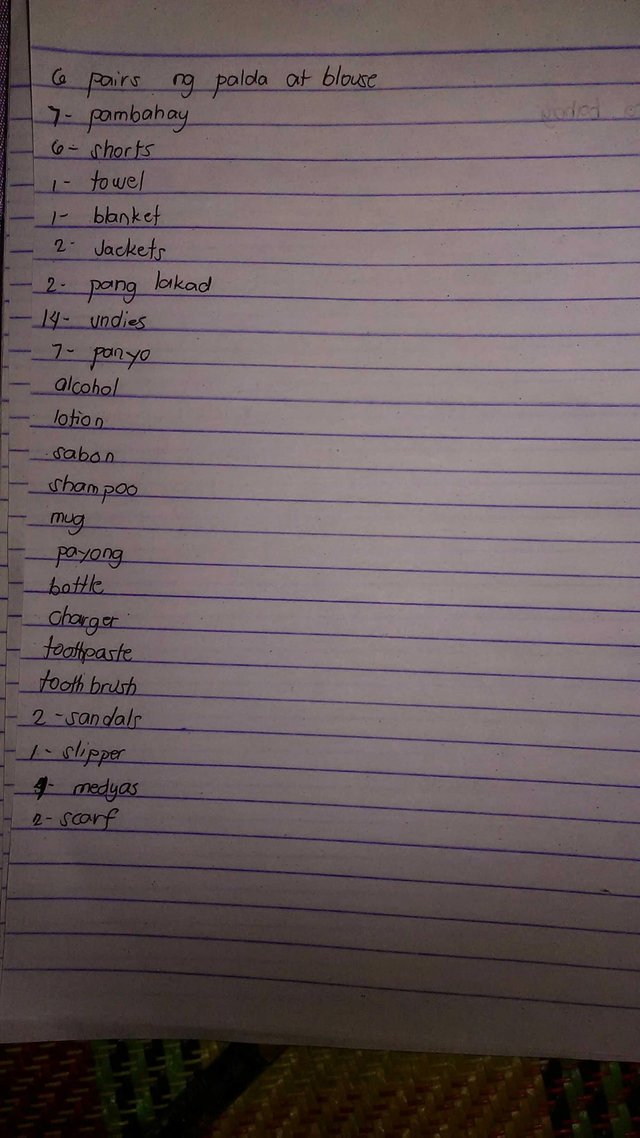 6 pairs ng palda at blouse
7- pambahay
6- shorts
1- towel
1- blanket
2- Jackets
2- pang lakad
14- undies
7- panyo
alcohol
lotion
sabon
shampoo
mug
payong
bottle
charger
toothpaste
toothbrush
2-sandals
1- slipper
medyas
2- scarf